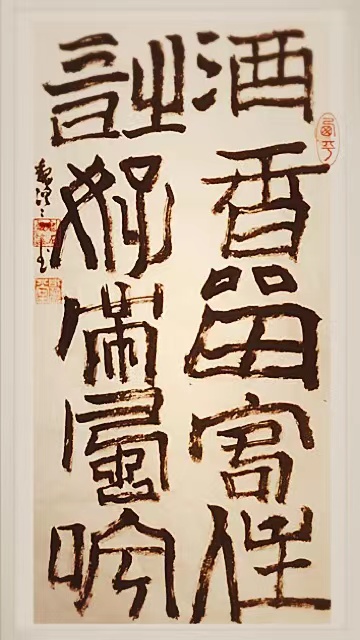 酒香留客住
詩好帶風吟